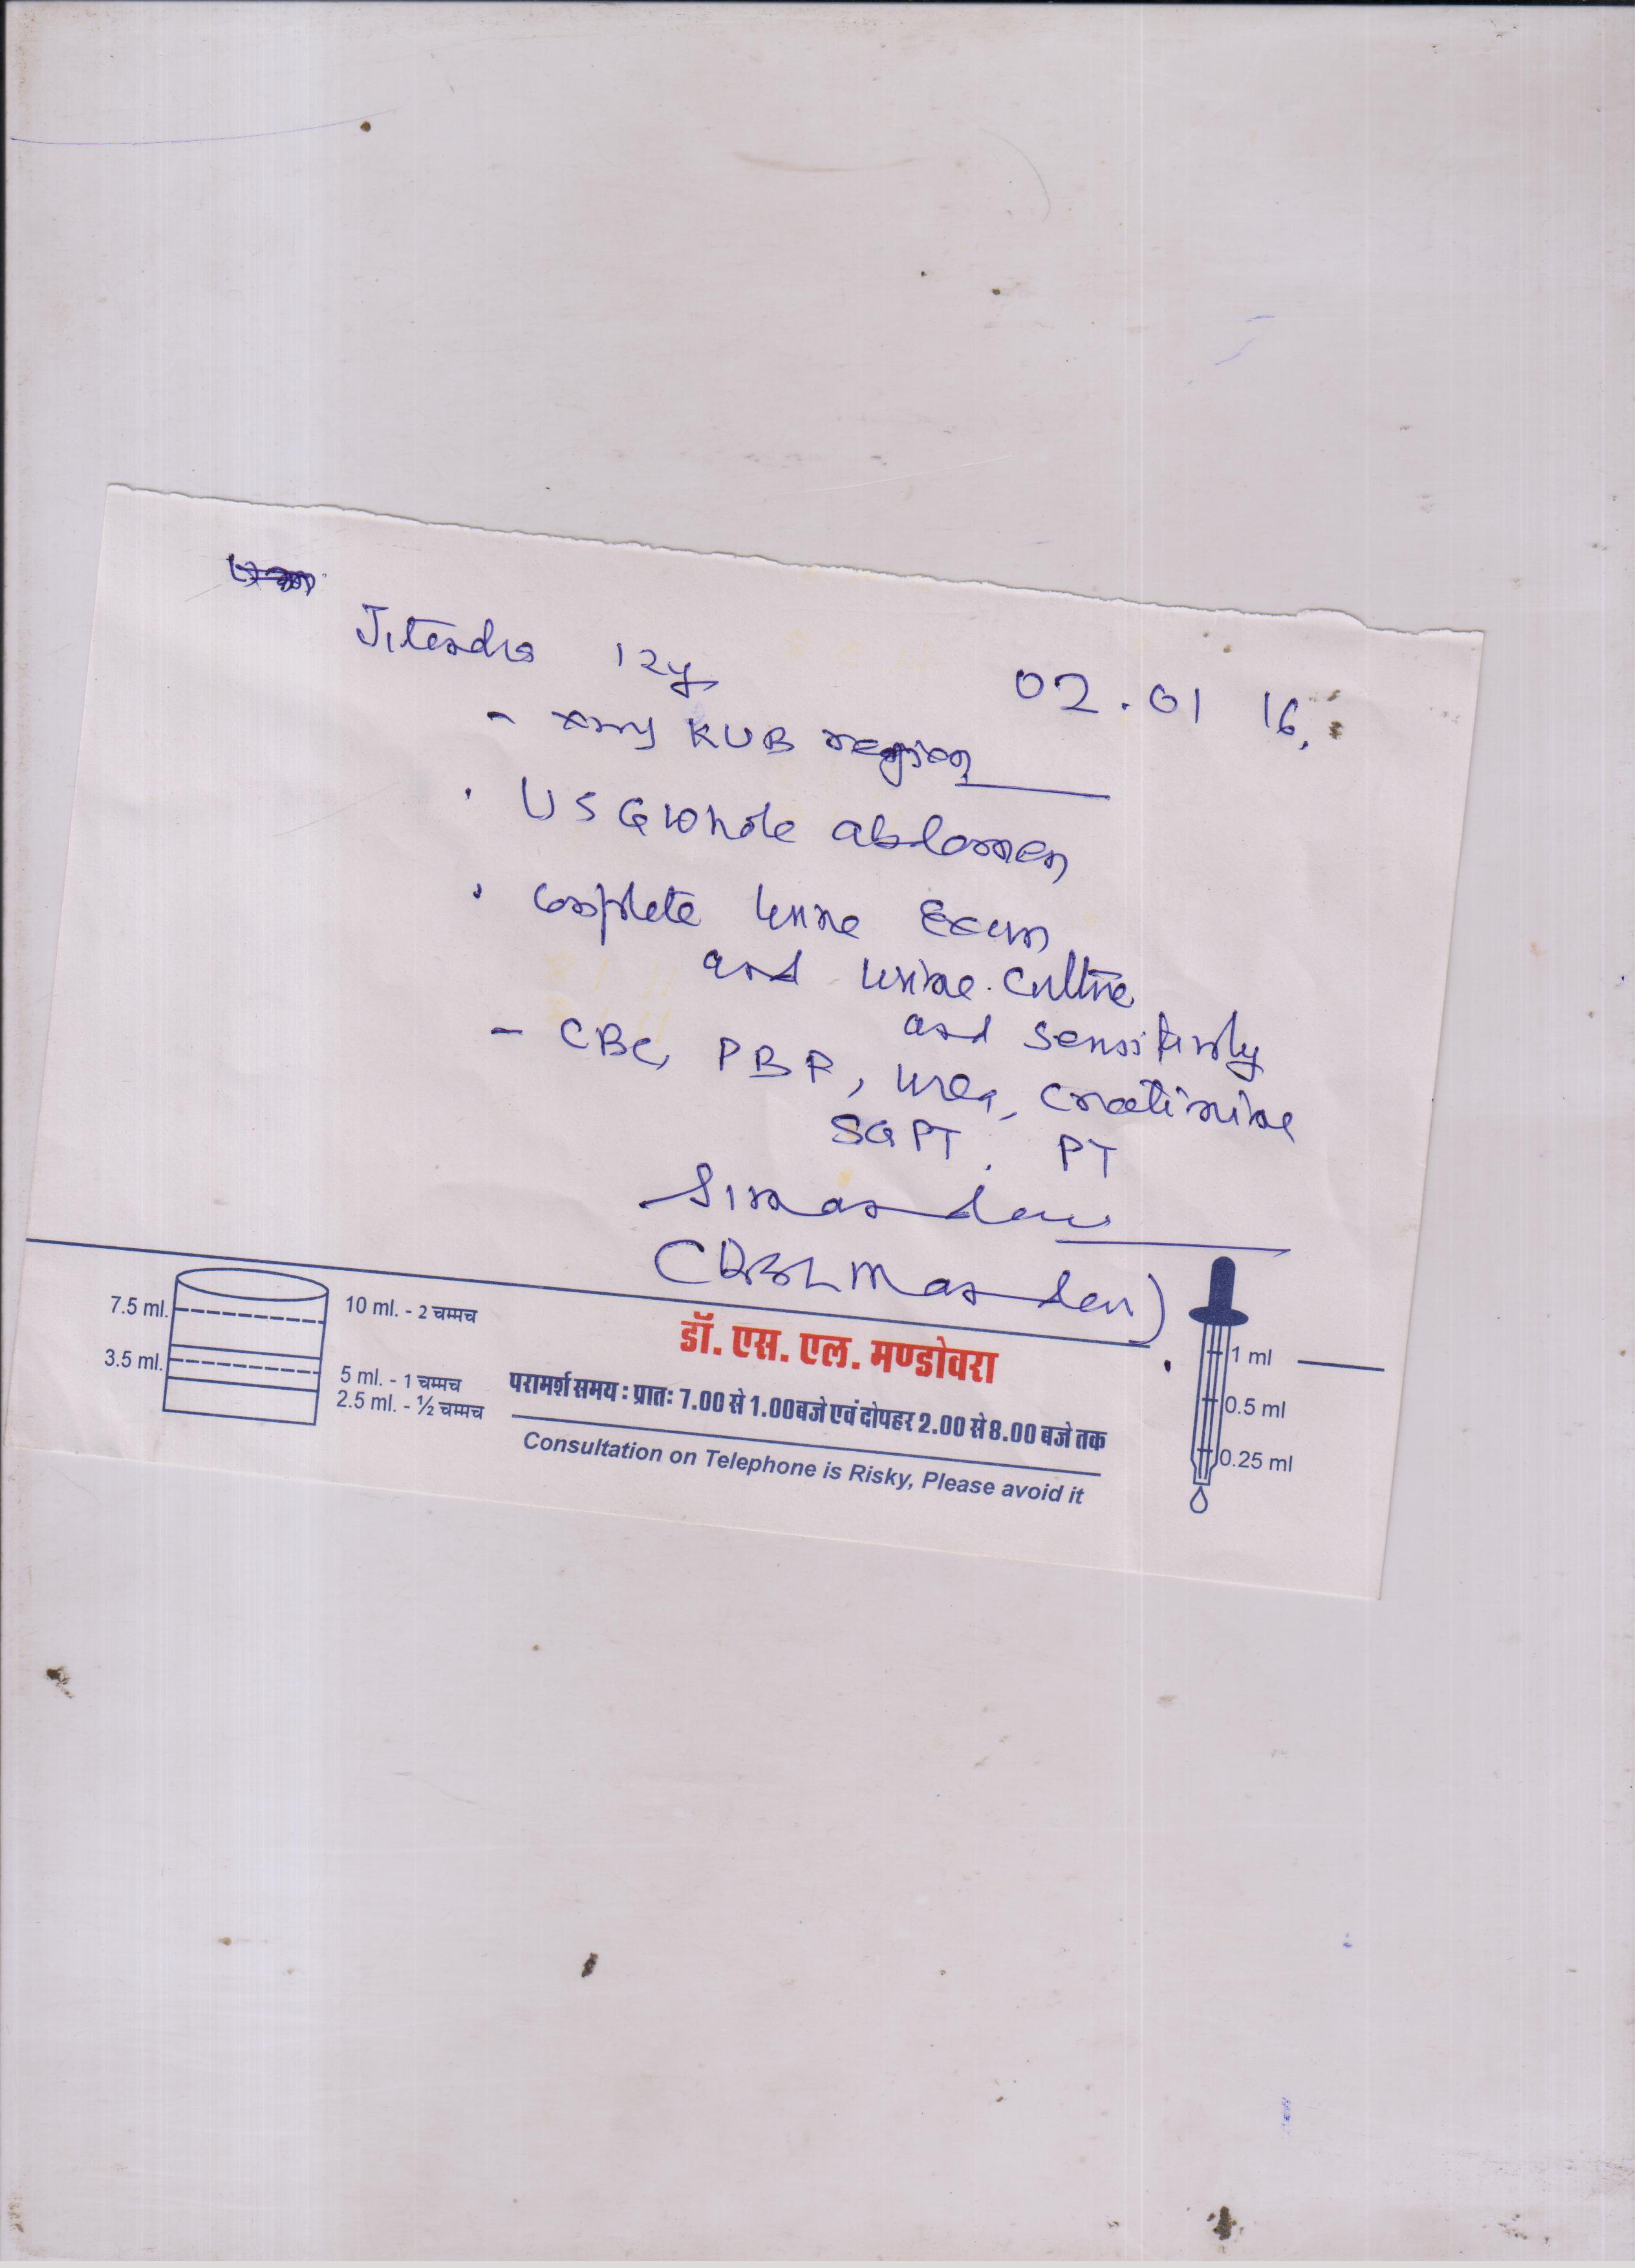 Jitendra 12y 02.01 16.
- xray KUB region
. USG whole abdomen
. Complete Urine Exam
and urine culture
and sensitivity
- CBC, PBF, urea, creatinine
SGPT. PT
7.5 ml.
3.5 ml.
10 ml. - 2 चम्मच
5 ml. - 1 चम्मच
2.5 ml. - ½ चम्मच
डॉ. एस. एल. मण्डोवरा
परामर्श समय : प्रातः 7.00 से 1.00 बजे एवं दोपहर 2.00 से 8.00 बजे तक
Consultation on Telephone is Risky, Please avoid it
1 ml
0.5 ml
0.25 ml